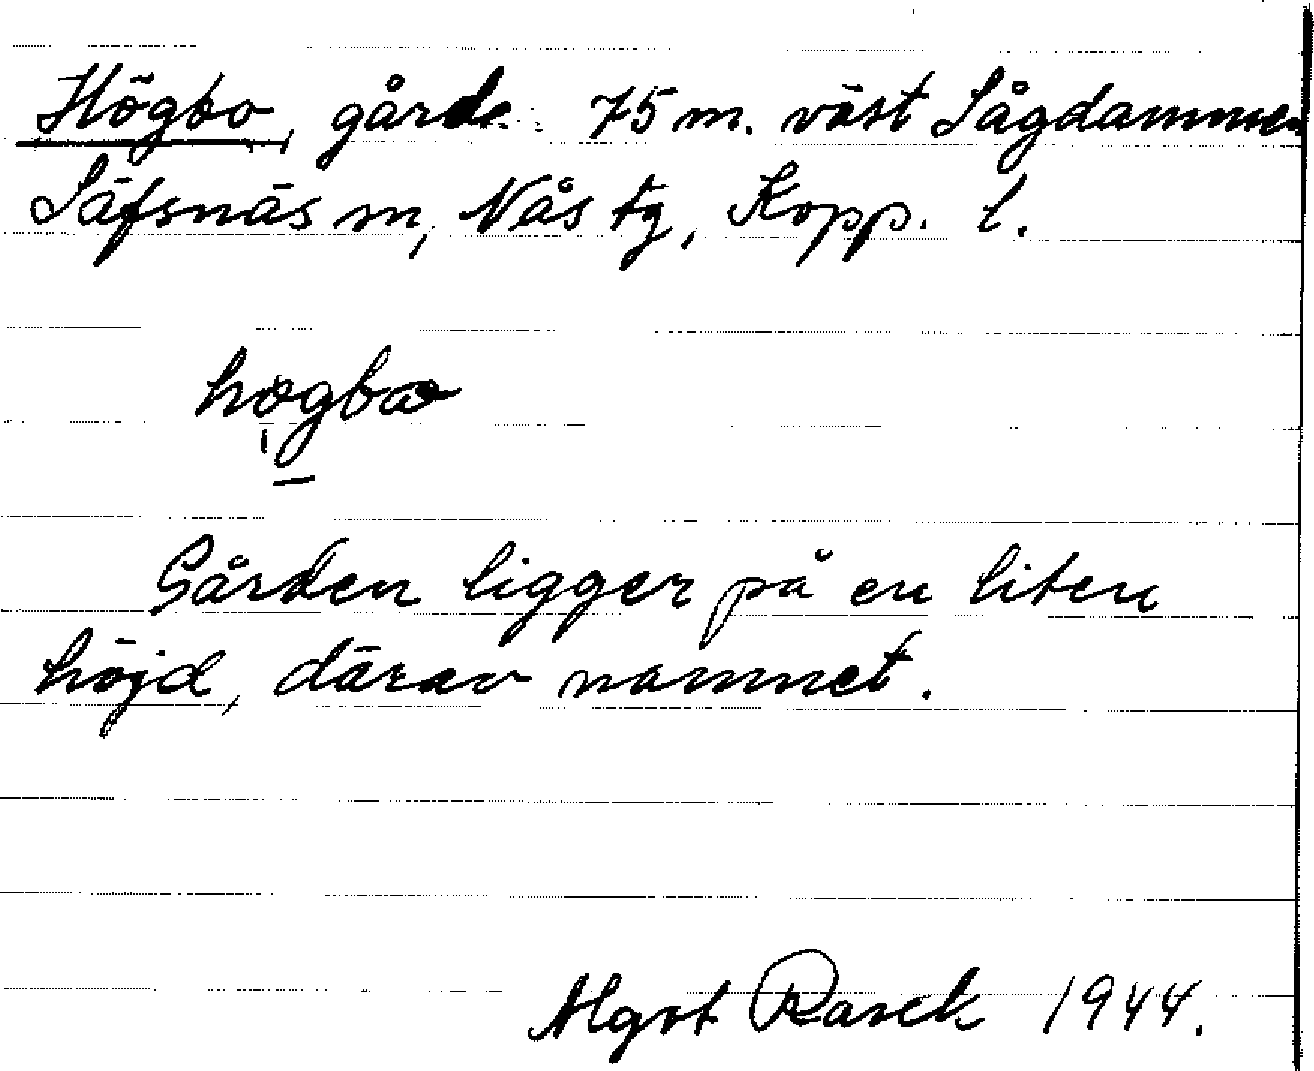 Högbo, gård 75 m. väst Sågdammen
Säfsnäs sn, Nås tg, Kopp. l.
högbo
Gården ligger på en liten
höjd, därav namnet.
Algot Rasck 1944.